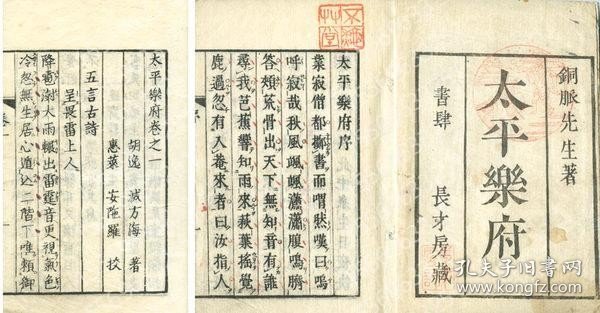 銅脈先生著
太平樂府
書肆 長才房藏
太平樂府序
業寂僧都擲書而喟然嘆曰嗚
呼寂哉秋風颯颯瀟瀟腹鳴臍
答頬荒骨出天下無知音有誰
尋我芭蕉響知雨來萩葉搖覺
鹿過忽有人菴來者曰汝指人
太平樂府卷之一
胡逸 滅方海 著
惠萊 安陀羅 校
五言古詩
呈畏雷上人
降雹澍大雨輙出雷霆音更視氣色
冷忽無生居心遁込二階下唯賴御
孔夫子旧书网
www.kongfz.com